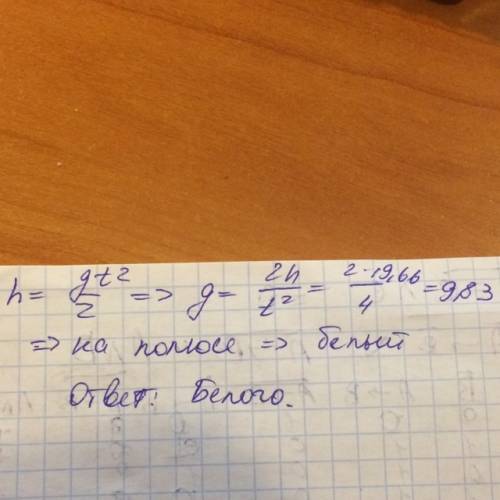 h = gt²/2 => g = 2h/t² = 2·19,66/4 = 9,83
=> на полюсе => белый
Ответ: Белого.